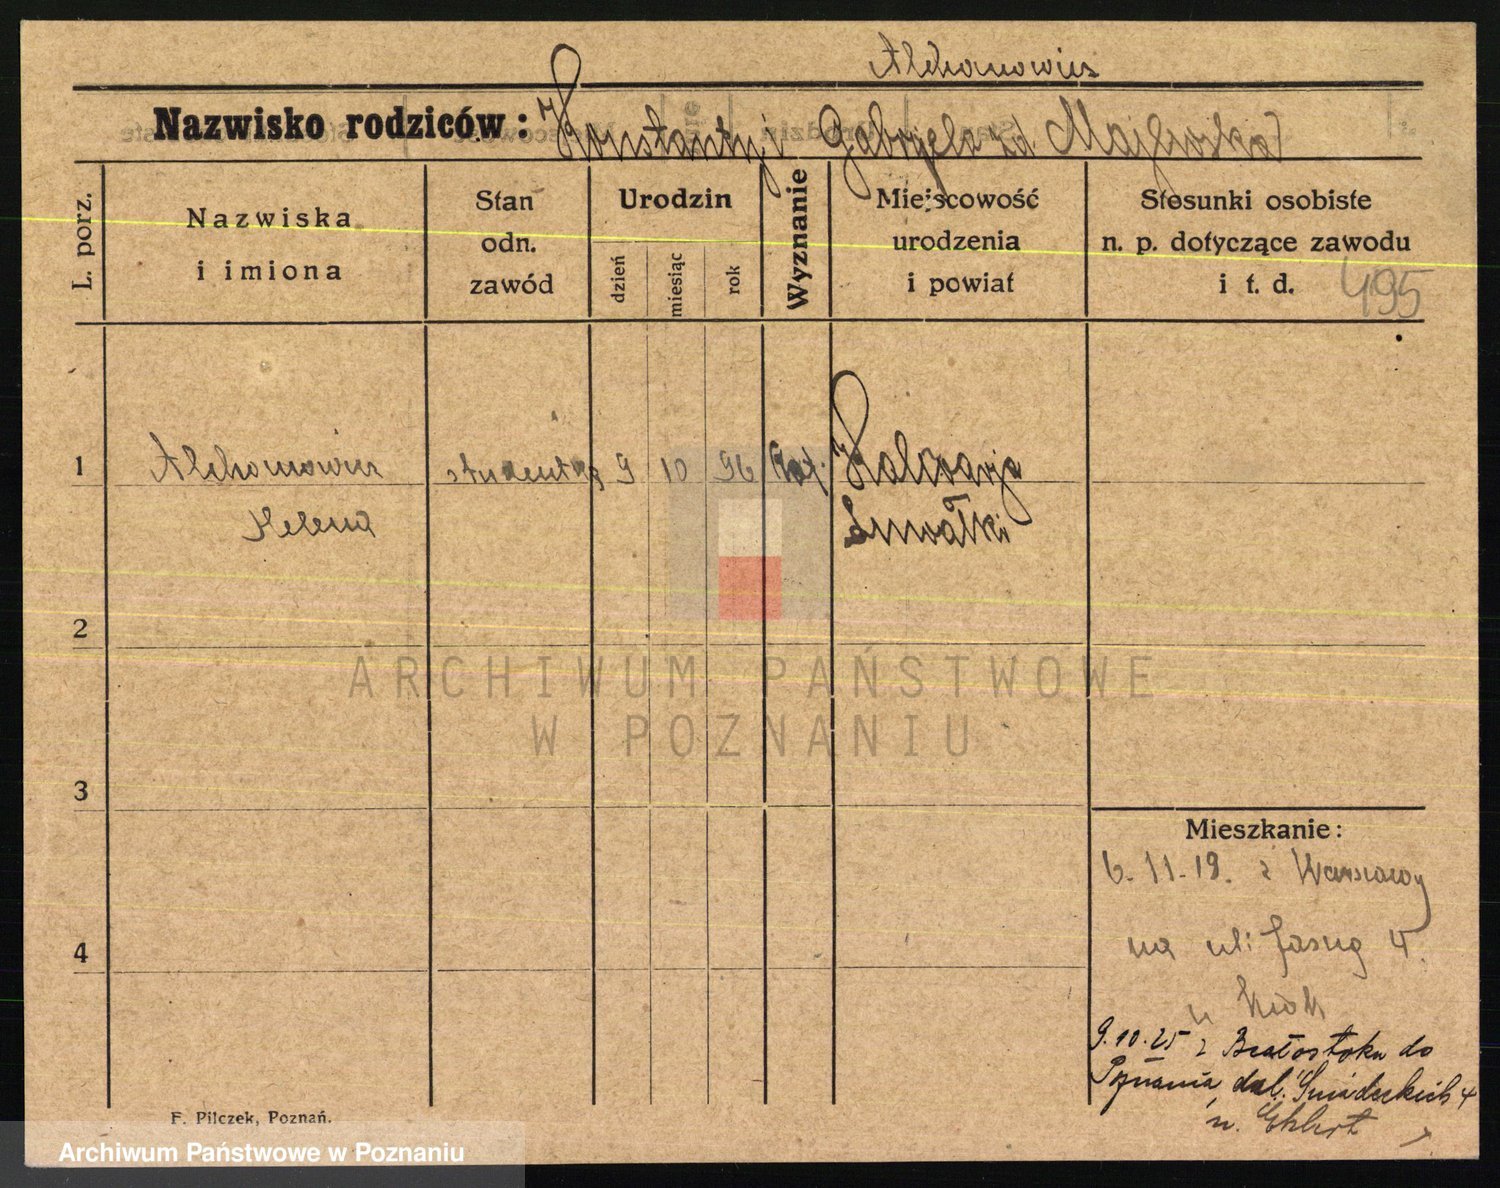 Alchonowicz
Nazwisko rodziców: Konstanty i Gabryela zd.
L. porz.
Nazwiska
i imiona
Stan
odn.
zawód
Urodzin
dzień
miesiąc
rok
Wyznanie
Miejscowość
urodzenia
i powiat
Stosunki osobiste
n. p. dotyczące zawodu
i t. d.
495
1
Alchonowicz
Helena
studentka
9
10
96
Kat.
Kalwarja
Suwałki
2
3
4
Mieszkanie:
6.11.19. z Warszawy
na uli Jasną 4.
u
9.10.25 z Białostoku do
Poznania, dal. Śniadeckich 4
u. Ehlert
F. Pilczek, Poznań.
ARCHIWUM PAŃSTWOWE
W POZNANIU
Archiwum Państwowe w Poznaniu